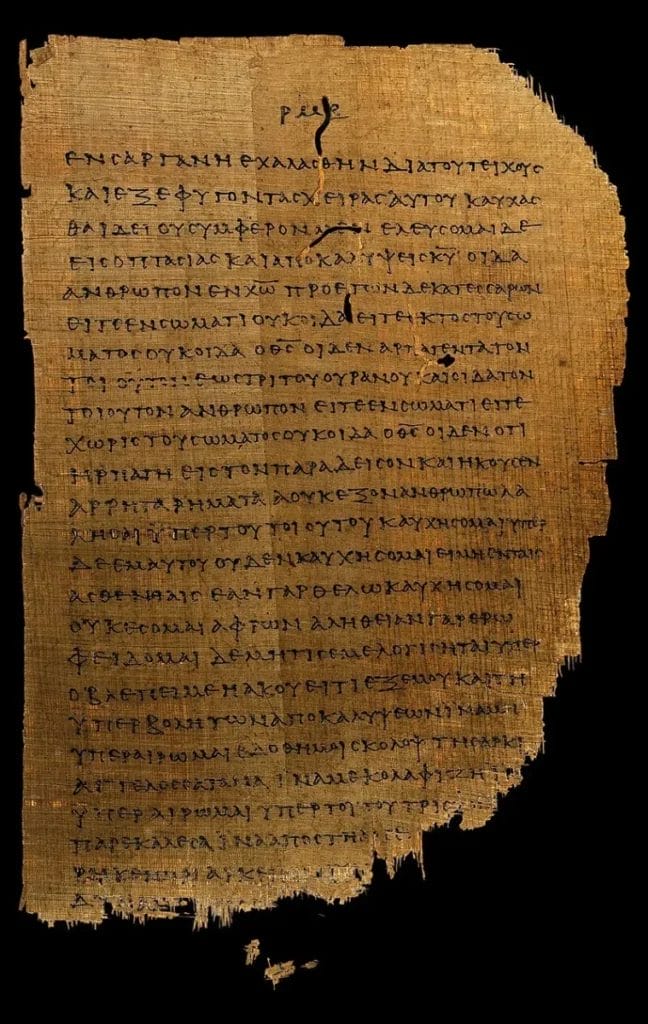 ρμε
ΕΝϹΑΡΓΑΝΗΕΧΑΛΑϹΘΗΝΔΙΑΤΟΥΤΕΙΧΟΥϹ
ΚΑΙΕΞΕΦΥΓΟΝΤΑϹΧΕΙΡΑϹΑΥΤΟΥΚΑΥΧΑϹ
ΘΑΙΔΕΙΟΥϹΥΜΦΕΡΟΝΜΕΝΕΛΕΥϹΟΜΑΙΔΕ
ΕΙϹΟΠΤΑϹΙΑϹΚΑΙΑΠΟΚΑΛΥΨΕΙϹΚ̅Υ̅ΟΙΔΑ
ΑΝΘΡΩΠΟΝΕΝΧ̅Ω̅ΠΡΟΕΤΩΝΔΕΚΑΤΕϹϹΑΡΩΝ
ΕΙΤΕΕΝϹΩΜΑΤΙΟΥΚΟΙΔΑΕΙΤΕΕΚΤΟϹΤΟΥϹΩ
ΜΑΤΟϹΟΥΚΟΙΔΑΟΘ̅Ϲ̅ΟΙΔΕΝΑΡΠΑΓΕΝΤΑΤΟΝ
ΤΟΙΟΥΤΟΝΕΩϹΤΡΙΤΟΥΟΥΡΑΝΟΥΚΑΙΟΙΔΑΤΟΝ
ΤΟΙΟΥΤΟΝΑΝΘΡΩΠΟΝΕΙΤΕΕΝϹΩΜΑΤΙΕΙΤΕ
ΧΩΡΙϹΤΟΥϹΩΜΑΤΟϹΟΥΚΟΙΔΑΟΘ̅Ϲ̅ΟΙΔΕΝΟΤΙ
ΗΡΠΑΓΗΕΙϹΤΟΝΠΑΡΑΔΕΙϹΟΝΚΑΙΗΚΟΥϹΕΝ
ΑΡΡΗΤΑΡΗΜΑΤΑΑΟΥΚΕΞΟΝΑΝΘΡΩΠΩΛΑ
ΛΗϹΑΙΫΠΕΡΤΟΥΤΟΙΟΥΤΟΥΚΑΥΧΗϹΟΜΑΙΥΠΕΡ
ΔΕΕΜΑΥΤΟΥΟΥΔΕΝΚΑΥΧΗϹΟΜΑΙΕΙΜΗΕΝΤΑΙϹ
ΑϹΘΕΝΕΙΑΙϹΕΑΝΓΑΡΘΕΛΩΚΑΥΧΗϹΟΜΑΙ
ΟΥΚΕϹΟΜΑΙΑΦΡΩΝΑΛΗΘΕΙΑΝΓΑΡΕΡΩ
ΦΕΙΔΟΜΑΙΔΕΜΗΤΙϹΕΜΕΛΟΓΙϹΗΤΑΙΥΠΕΡ
ΟΒΛΕΠΕΙΜΕΗΑΚΟΥΕΙΤΙΕΞΕΜΟΥΚΑΙΤΗ
ΫΠΕΡΒΟΛΗΤΩΝΑΠΟΚΑΛΥΨΕΩΝΙΝΑΜΗ
ΥΠΕΡΑΙΡΩΜΑΙΕΔΟΘΗΜΟΙϹΚΟΛΟΨΤΗϹΑΡΚΙ
ΑΓΓΕΛΟϹϹΑΤΑΝΑΙΝΑΜΕΚΟΛΑΦΙΖΗΙ
ΫΠΕΡΑΙΡΩΜΑΙΥΠΕΡΤΟΥΤΟΥΤΡΙϹ
ΠΑΡΕΚΑΛΕϹΑΙΝΑΑΠΟϹΤΗ